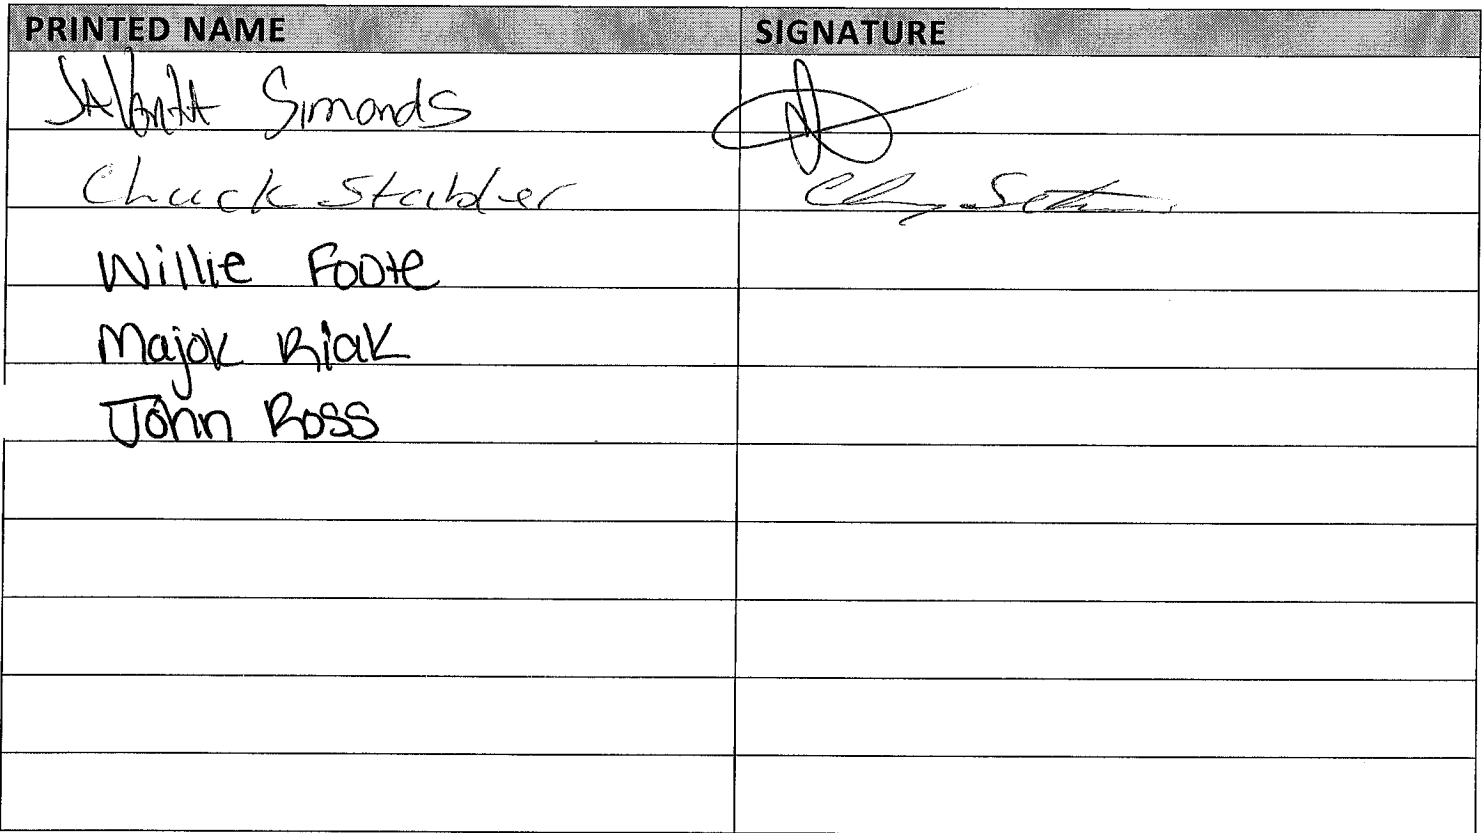 PRINTED NAME SIGNATURE
Simonds
Chuck Stabler
Willie Foote
Majok Riak
John Ross